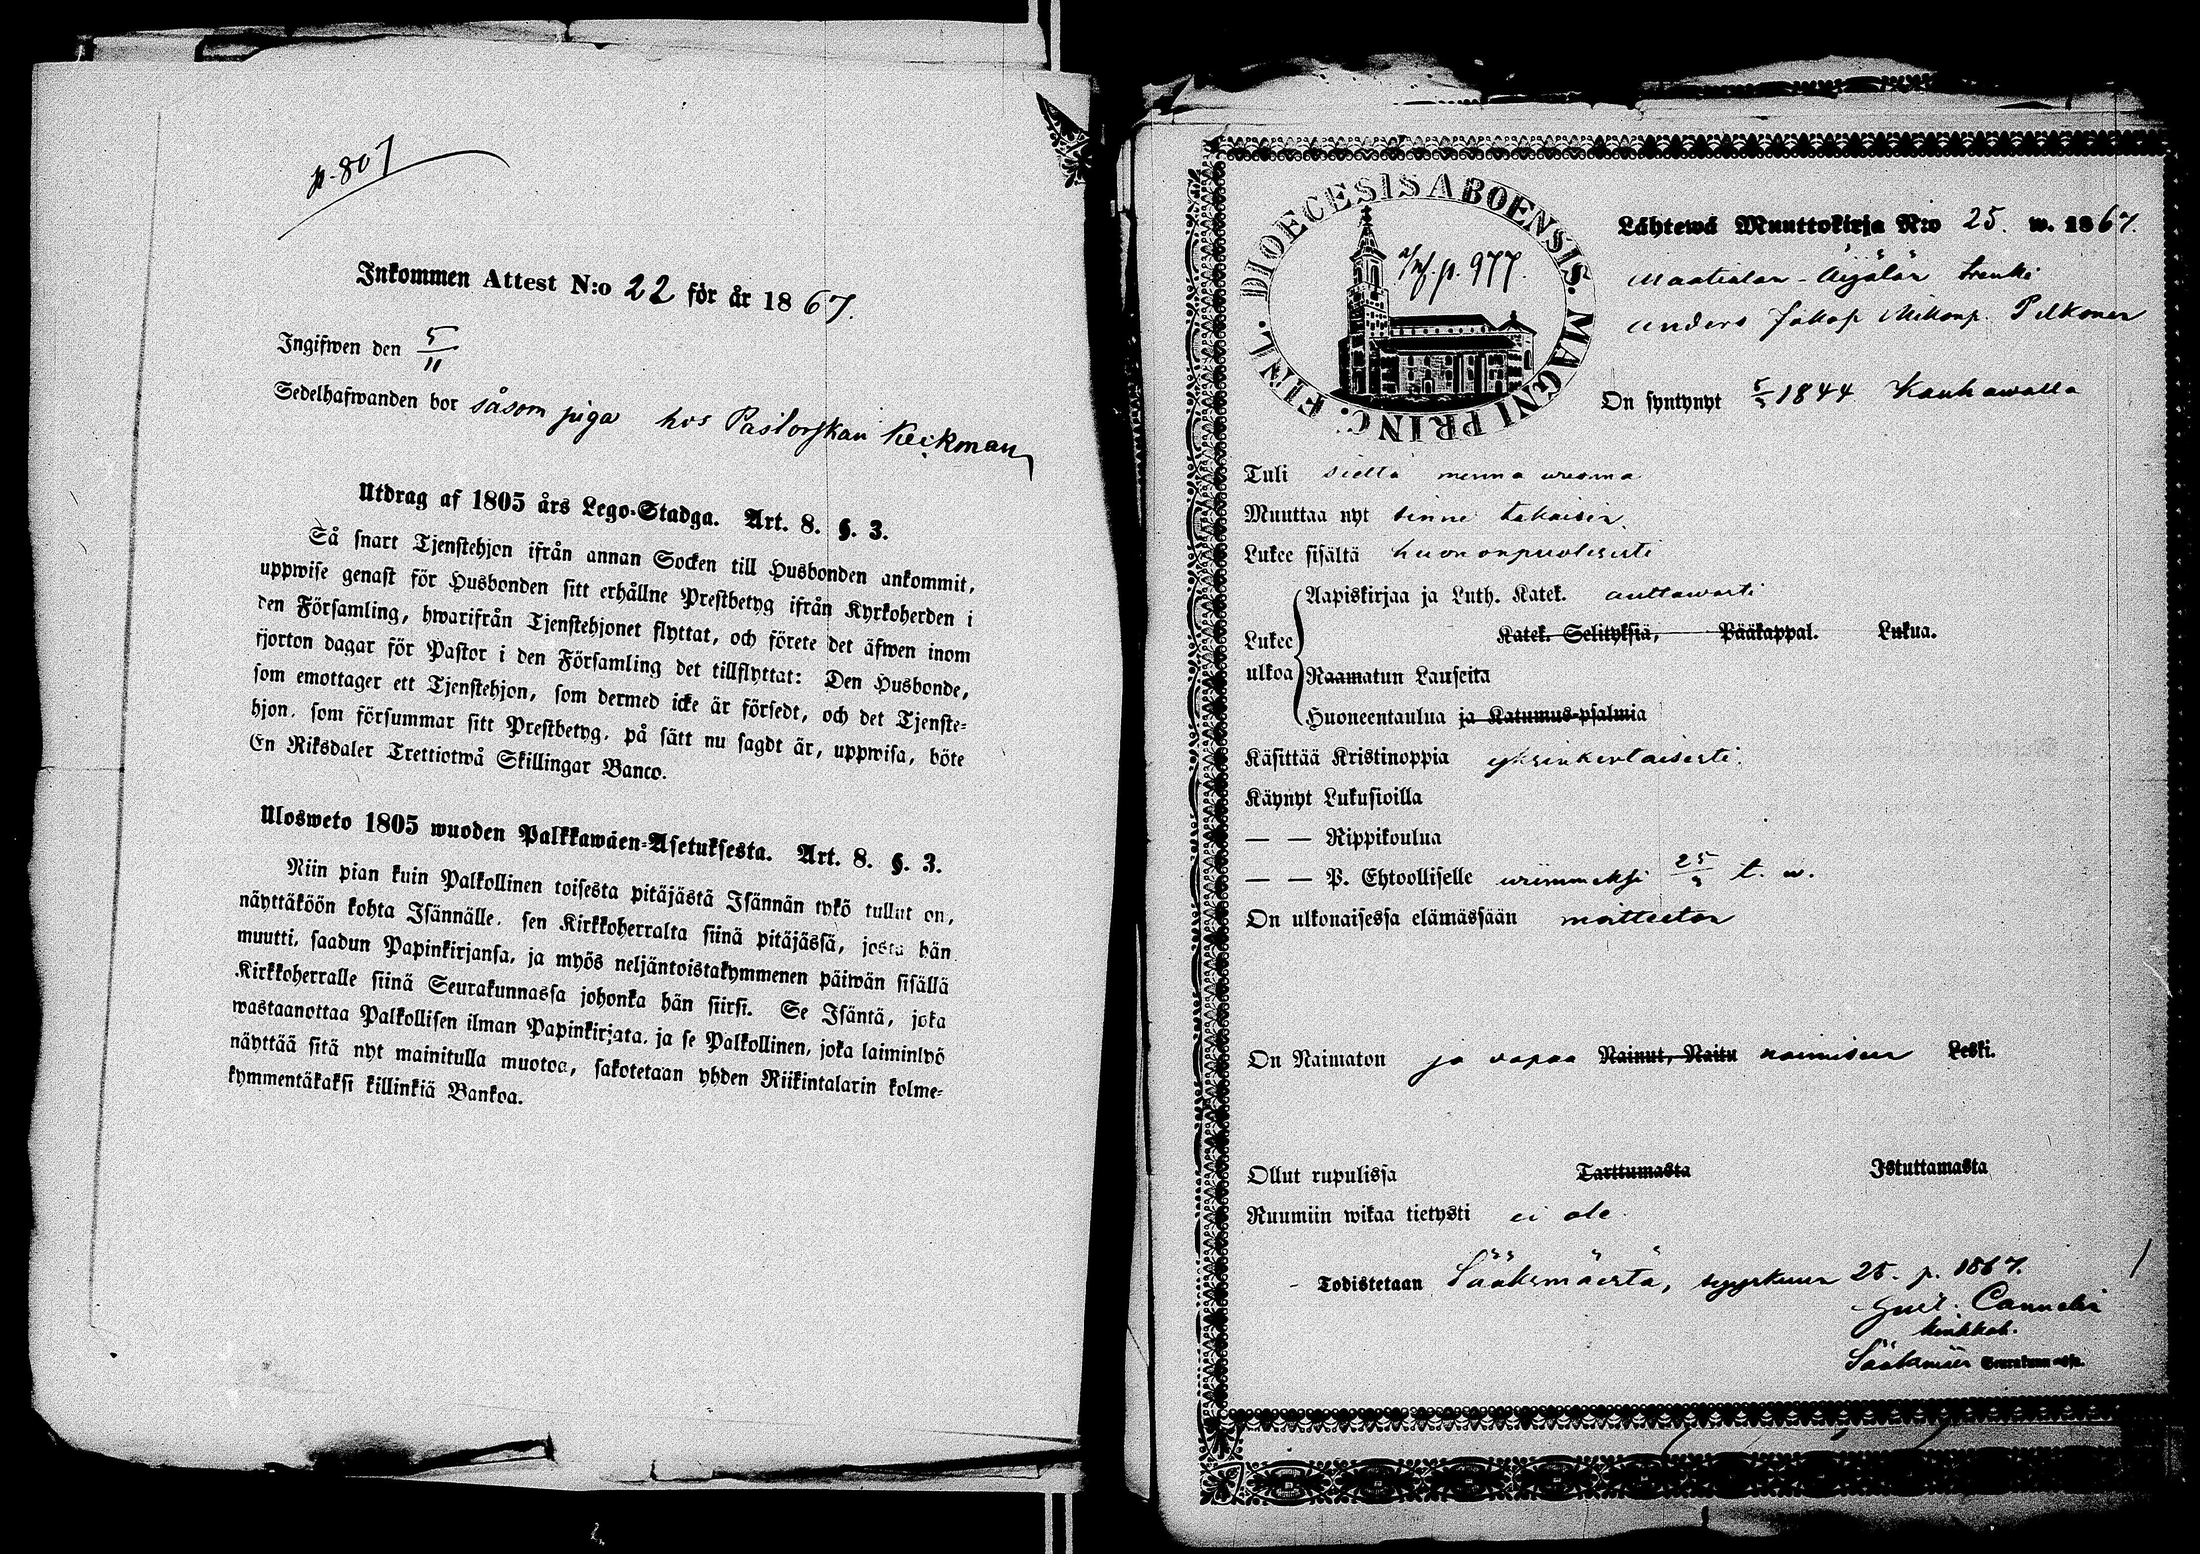 p. 807
Inkommen Attest N:o 22 för år 1867.
Ingifwen den 5/11
Sedelhafwanden bor såsom piga hos Pastorskan Keckman
Utdrag af 1805 års Lego-Stadga. Art. 8. §. 3.
Så snart Tjenstehjon ifrån annan Socken till Husbonden ankommit,
uppwise genast för Husbonden sitt erhållne Prestbetyg ifrån Kyrkoherden i
den Församling, hwarifrån Tjenstehjonet flyttat, och förete det äfwen inom
fjorton dagar för Pastor i den Församling det tillflyttat: Den Husbonde,
som emottager ett Tjenstehjon, som dermed icke är försedt, och det Tjenste-
hjon, som försummar sitt Prestbetyg, på sätt nu sagdt är, uppwisa, böte
En Riksdaler Trettiotwå Skillingar Banco.
Ulosweto 1805 wuoden Palkkawäen-Asetuksesta. Art. 8. §. 3.
Niin pian kuin Palkollinen toisesta pitäjästä Isännän tykö tullut on,
näyttäköön kohta Isännälle, sen Kirkkoherralta siinä pitäjässä, josta hän
muutti, saadun Papinkirjansa, ja myös neljäntoistakymmenen päiwän sisällä
Kirkkoherralle siinä Seurakunnassa johonka hän siirsi. Se Isäntä, joka
wastaanottaa Palkollisen ilman Papinkirjata, ja se Palkollinen, joka laiminlyö
näyttää sitä nyt mainitulla muotoa, sakotetaan yhden Riikintalarin kolme-
kymmentäkaksi killinkiä Bankoa.
DIOECESIS ABOENSIS. MAGNI PRINC. FINL.
p. 977.
Lähtewä Muuttokirja N:o 25. w. 1867.
Maatialan-Äijälän renki
Anders Jakop Mikonp. Pelkonen
On syntynyt 5/3 1844 Kauhawalla
Tuli sieltä menna wuonna
Muuttaa nyt sinne takaisin.
Lukee sisältä huononpuolisesti
Aapiskirjaa ja Luth. Katek. auttawasti
Lukee ulkoa
Katek. Selityksiä, Pääkappal. Lukua.
Raamatun Lauseita
Huoneentaulua ja Katumus-psalmia
Käsittää Kristinoppia yksinkertaisesti.
Käynyt Lukusioilla
— — Rippikoulua
— — P. Ehtoolliselle wiimmeksi 25/3 t. w.
On ulkonaisessa elämässään moitteeton
On Naimaton ja vapaa Nainut, Naitu naimiseen Leski.
Ollut rupulissa Tarttumasta Istuttamasta
Ruumiin wikaa tietysti ei ole.
Todistetaan Sääksmäestä, syyskuun 25. p. 1867.
Gust. Cannelin
kirkkoh.
Sääksmäen Seurakunnassa.